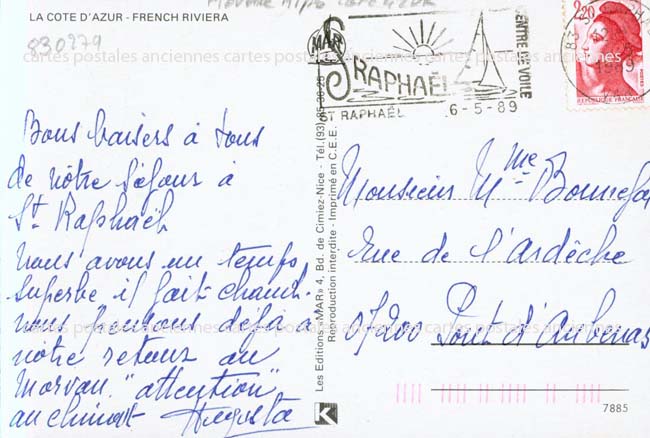 LA COTE D'AZUR - FRENCH RIVIERA
830279
cartes postales anciennes cartes postales anciennes cartes postales anciennes
Bons baisers à tous
de nôtre séjour à
St. Raphaël
nous avons un temps
superbe il fait chaud.
nous pensons déjà à
nôtre retour au
Morvan. "attention"
au climat Augusta
Les Editions «MAR» 4, Bd. de Cimiez-Nice - Tél.(93) 85-36-25
Reproduction interdite - Imprimé en C.E.E.
K
MAR
ST RAPHAËL
CENTRE DE VOILE
ST RAPHAËL 6-5-89
2,20
POSTES
REPUBLIQUE FRANÇAISE
Monsieur Mme
Rue de l'Ardèche
07200 Pont d'Aubenas
cartes postales anciennes cartes postales anciennes cartes postales anciennes
7885